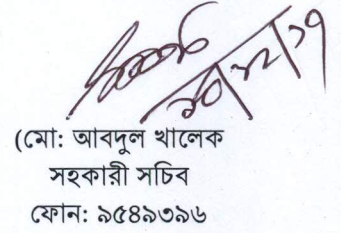 (মো: আবদুল খালেক
সহকারী সচিব
ফোন: ৯৫৪৯৩৯৬